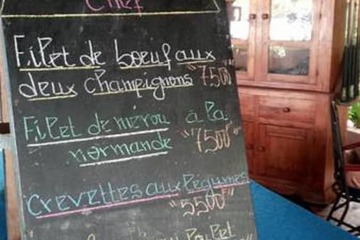 Chef
Filet de boeuf aux
deux champignons "7500"
Filet de mérou à la
normande "7500"
Crevettes aux légumes
"5500"